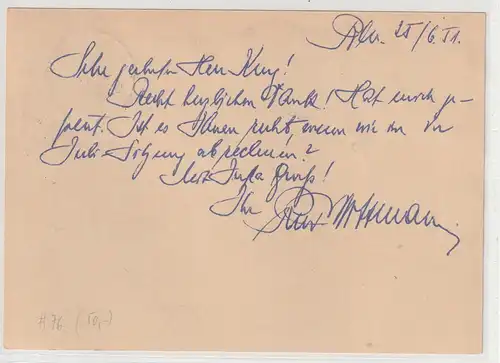 Bln. 25/6.51.
Sehr geehrter Herr Krug!
Recht herzlichen Dank! Hat mich ge-
freut. Ist es Ihnen recht, wenn wir in der
Juli-Sitzung abrechnen?
Mit Gruß!
Ihr
#76 (50,-)